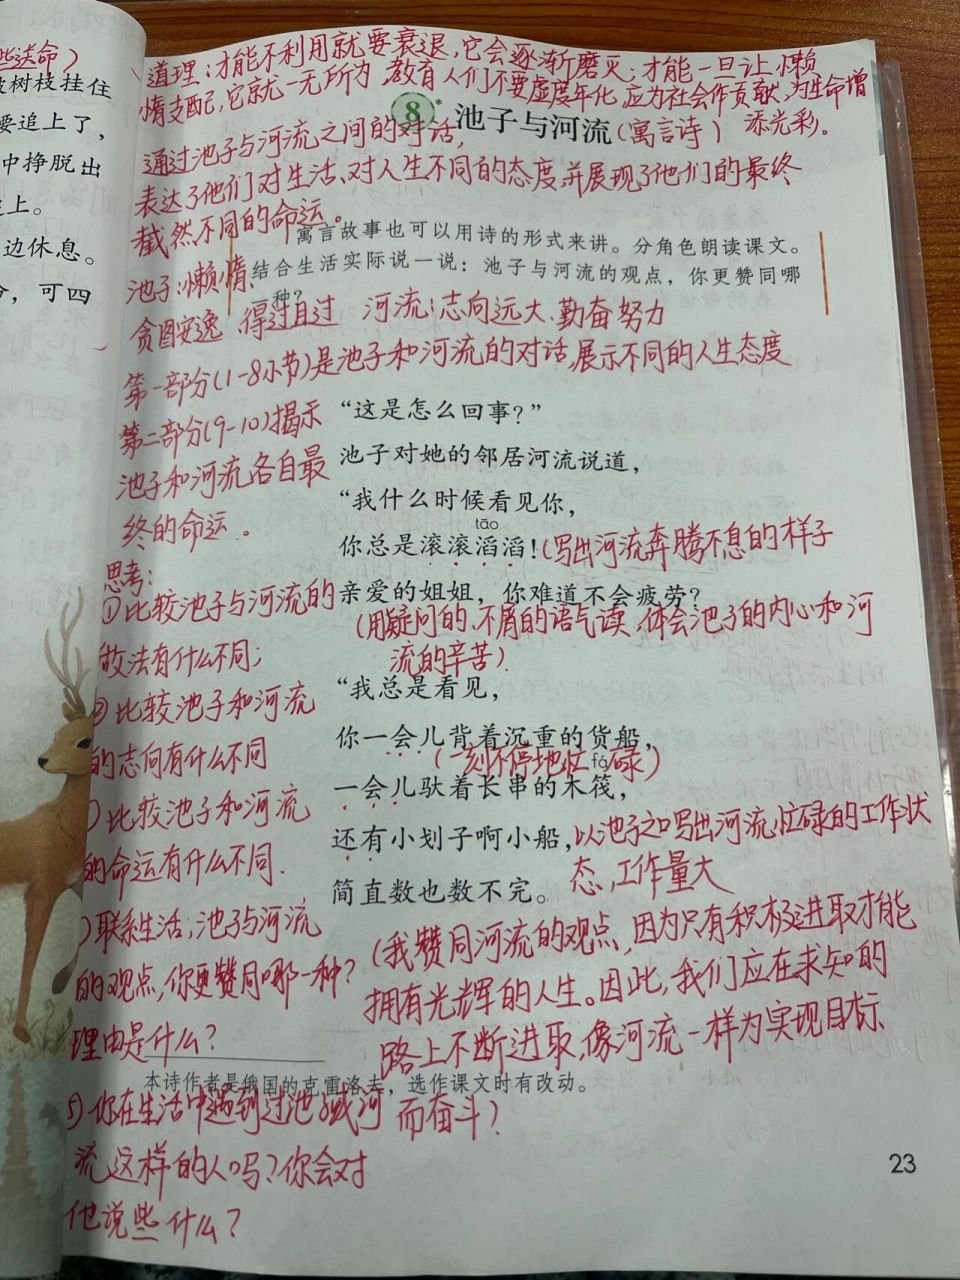 些逃命）
被树枝挂住
要追上了，
中挣脱出
上。
边休息。
，可四
道理：才能不利用就要衰退，它会逐渐磨灭；才能一旦让懒
惰支配，它就一无所为 教育人们不要虚度年化，应为社会作贡献，为生命增
添光彩。
8* 池子与河流（寓言诗）
通过池子与河流之间的对话，
表达了他们对生活、对人生不同的态度并展现了他们的最终
截然不同的命运。
寓言故事也可以用诗的形式来讲。分角色朗读课文。
结合生活实际说一说：池子与河流的观点，你更赞同哪
一种？
池子：懒惰、
贪图安逸、得过且过 河流：志向远大、勤奋努力
第一部分（1-8小节）是池子和河流的对话，展示不同的人生态度
第二部分（9-10）揭示
池子和河流各自最
终的命运。
“这是怎么回事？”
池子对她的邻居河流说道，
“我什么时候看见你，
tāo
你总是滚滚滔滔！（写出河流奔腾不息的样子
亲爱的姐姐，你难道不会疲劳？
（用疑问的、不屑的语气读，体会池子的内心和河
流的辛苦）
“我总是看见，
你一会儿背着沉重的货船，
（一刻不停地忙碌）
fá
一会儿驮着长串的木筏，
还有小划子啊小船，以池子之口写出河流忙碌的工作状
态，工作量大
简直数也数不完。
思考：
①比较池子与河流的
做法有什么不同；
②比较池子和河流
的志向有什么不同
）比较池子和河流
的命运有什么不同.
）联系生活；池子与河流
的观点，你更赞同哪一种？
理由是什么？
（我赞同河流的观点，因为只有积极进取才能
拥有光辉的人生。因此，我们应在求知的
路上不断进取，像河流一样为实现目标
而奋斗？
本诗作者是俄国的克雷洛夫，选作课文时有改动。
5）你在生活中遇到过池子或河
流这样的人吗？你会对
他说些什么？
23